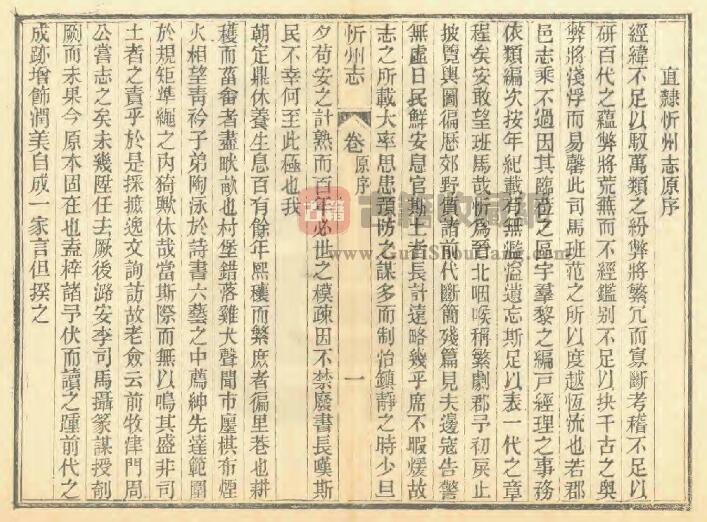 直隸忻州志原序
經緯不足以馭萬類之紛弊將繁冗而寡斷考稽不足以
研百代之蘊弊將荒蕪而不經鑑別不足以抉千古之與
弊將淺浮而易罄此司馬班范之所以度越恆流也若郡
邑志乘不過因其疇
之區宇羣黎之編戶經理之事務
依類編次按年紀載有無鑑溢遺忘斯足以表一代之章
程矣安敢望班馬哉忻爲晉北咽喉稱繁劇郡予初戾止
披覽輿圖徧歷郊野
諸前代斷簡殘篇見夫邊寇告警
無虛日民鮮安息官斯土者長計遠略幾乎席不暇煖故
志之所載大率思患預防之謀多而制治鎮靜之時少旦
夕苟安之計熟而百年必世之模疎因不禁廢書長嘆斯
民不幸何至此極也我
朝定鼎休養生息百有餘年熙穰而繁庶者徧里巷也耕
穫而菑畬者盡畎畝也村堡錯落雞犬聲聞市廛棋布煙
火相望靑衿子弟陶泳於詩書六藝之中薦紳先達範圍
於規矩準繩之內猗歟休哉當斯際而無以鳴其盛非司
土者之責乎於是採摭逸文詢訪故老僉云前牧津門周
公嘗志之矣未幾陞任去厥後潞安李司馬攝篆謀授剞
劂而未果今原本固在也盍梓諸予伏而讀之踵前代之
成跡增飾潤美自成一家言但揆之
忻州志
卷
原序
一
古籍
古籍收藏網
www.GuJiShouCang.com